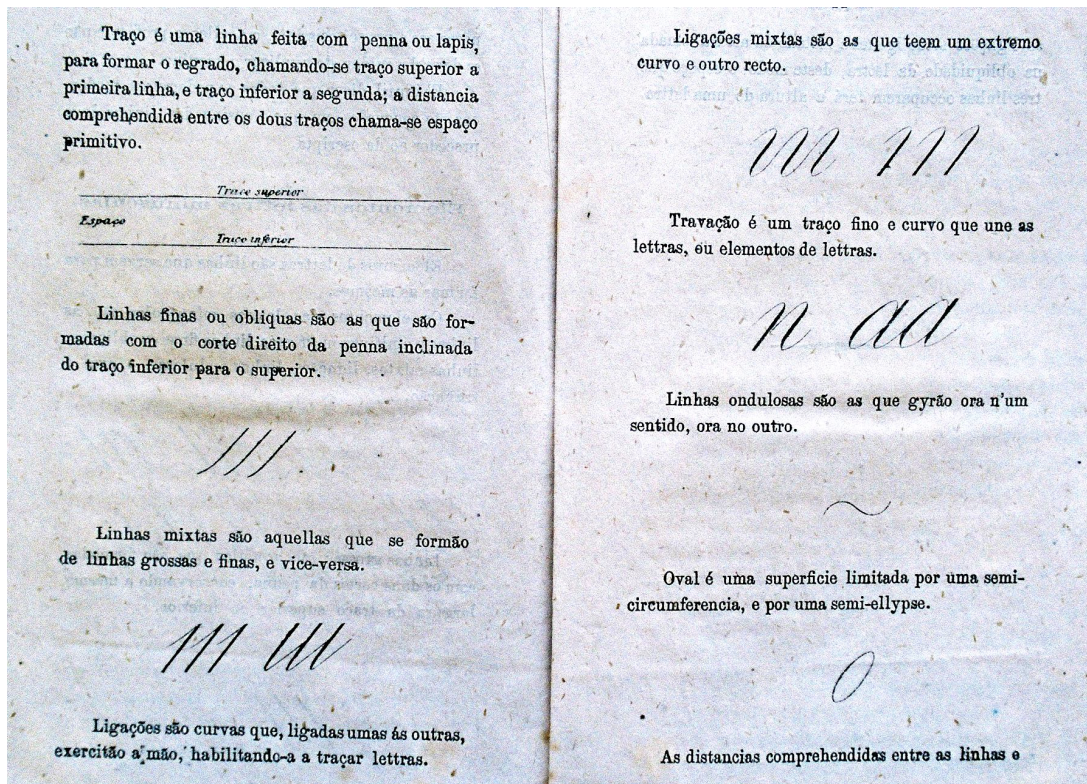 Traço é uma linha feita com penna ou lapis,
para formar o regrado, chamando-se traço superior a
primeira linha, e traço inferior a segunda; a distancia
comprehendida entre os dous traços chama-se espaço
primitivo.
Traço superior
Espaço
Traço inferior
Linhas finas ou obliquas são as que são for-
madas com o corte direito da penna inclinada
do traço inferior para o superior.
Linhas mixtas são aquellas que se formão
de linhas grossas e finas, e vice-versa.
Ligações são curvas que, ligadas umas ás outras,
exercitão a mão, habilitando-a a traçar lettras.
Ligações mixtas são as que teem um extremo
curvo e outro recto.
Travação é um traço fino e curvo que une as
lettras, ou elementos de lettras.
n aa
Linhas ondulosas são as que gyrão ora n'um
sentido, ora no outro.
Oval é uma superficie limitada por uma semi-
circumferencia, e por uma semi-ellypse.
As distancias comprehendidas entre as linhas e